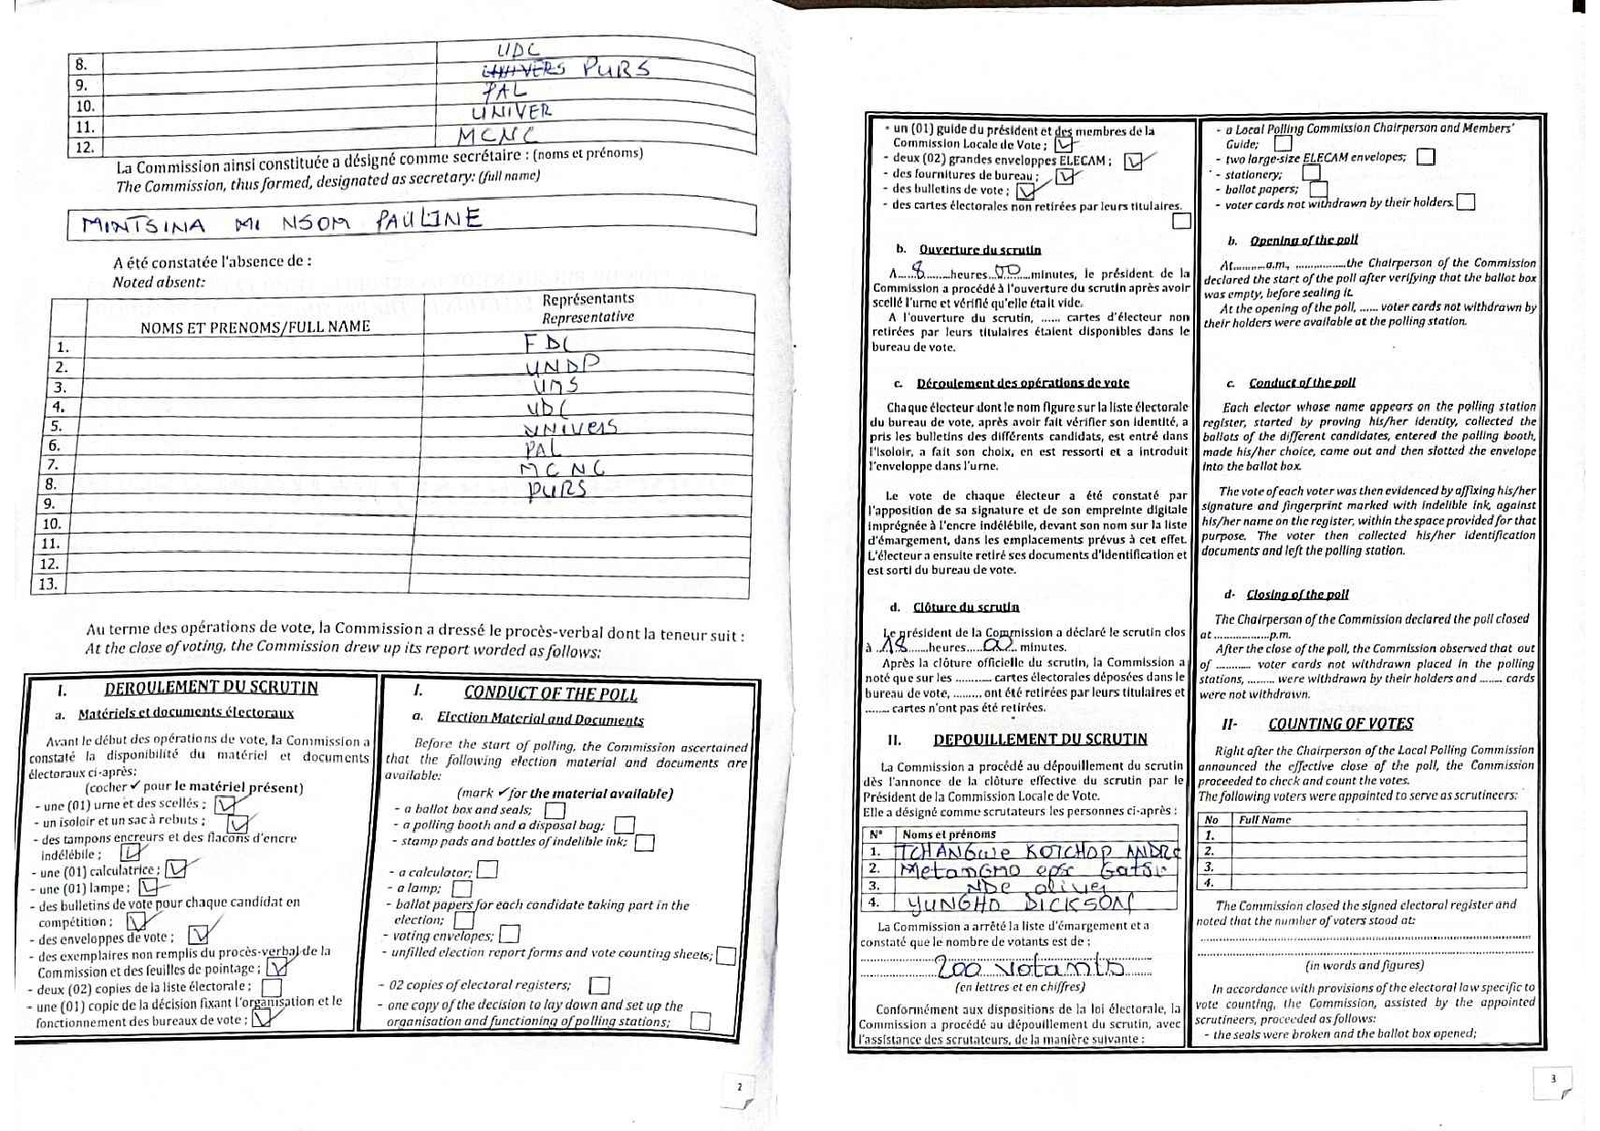 8. UDC
9. UNIVERS PURS
10. PAL
11. UNIVER
12. MCNC
La Commission ainsi constituée a désigné comme secrétaire : (noms et prénoms)
The Commission, thus formed, designated as secretary: (full name)
MINTSINA MI NSOM PAULINE
A été constatée l'absence de :
Noted absent:
NOMS ET PRENOMS/FULL NAME
Représentants
Representative
1. FDC
2. UNDP
3. UMS
4. UDC
5. UNIVERS
6. PAL
7. MCNC
8. PURS
9.
10.
11.
12.
13.
Au terme des opérations de vote, la Commission a dressé le procès-verbal dont la teneur suit :
At the close of voting, the Commission drew up its report worded as follows:
I. DEROULEMENT DU SCRUTIN
a. Matériels et documents électoraux
Avant le début des opérations de vote, la Commission a
constaté la disponibilité du matériel et documents
électoraux ci-après:
(cocher ✓ pour le matériel présent)
- une (01) urne et des scellés ;
- un isoloir et un sac à rebuts ;
- des tampons encreurs et des flacons d'encre
indélébile ;
- une (01) calculatrice ;
- une (01) lampe ;
- des bulletins de vote pour chaque candidat en
compétition ;
- des enveloppes de vote ;
- des exemplaires non remplis du procès-verbal de la
Commission et des feuilles de pointage ;
- deux (02) copies de la liste électorale ;
- une (01) copie de la décision fixant l'organisation et le
fonctionnement des bureaux de vote ;
I. CONDUCT OF THE POLL
a. Election Material and Documents
Before the start of polling, the Commission ascertained
that the following election material and documents are
available:
(mark ✓ for the material available)
- a ballot box and seals;
- a polling booth and a disposal bag;
- stamp pads and bottles of indelible ink;
- a calculator;
- a lamp;
- ballot papers for each candidate taking part in the
election;
- voting envelopes;
- unfilled election report forms and vote counting sheets;
- 02 copies of electoral registers;
- one copy of the decision to lay down and set up the
organisation and functioning of polling stations;
2
- un (01) guide du président et des membres de la
Commission Locale de Vote ;
- deux (02) grandes enveloppes ELECAM ;
- des fournitures de bureau ;
- des bulletins de vote ;
- des cartes électorales non retirées par leurs titulaires.
b. Ouverture du scrutin
A....8......heures..00...minutes, le président de la
Commission a procédé à l'ouverture du scrutin après avoir
scellé l'urne et vérifié qu'elle était vide.
A l'ouverture du scrutin, ...... cartes d'électeur non
retirées par leurs titulaires étaient disponibles dans le
bureau de vote.
c. Déroulement des opérations de vote
Chaque électeur dont le nom figure sur la liste électorale
du bureau de vote, après avoir fait vérifier son identité, a
pris les bulletins des différents candidats, est entré dans
l'isoloir, a fait son choix, en est ressorti et a introduit
l'enveloppe dans l'urne.
Le vote de chaque électeur a été constaté par
l'apposition de sa signature et de son empreinte digitale
imprégnée à l'encre indélébile, devant son nom sur la liste
d'émargement, dans les emplacements prévus à cet effet.
L'électeur a ensuite retiré ses documents d'identification et
est sorti du bureau de vote.
d. Clôture du scrutin
Le président de la Commission a déclaré le scrutin clos
à ..18......heures....00... minutes.
Après la clôture officielle du scrutin, la Commission a
noté que sur les ........... cartes électorales déposées dans le
bureau de vote, ......... ont été retirées par leurs titulaires et
........ cartes n'ont pas été retirées.
II. DEPOUILLEMENT DU SCRUTIN
La Commission a procédé au dépouillement du scrutin
dès l'annonce de la clôture effective du scrutin par le
Président de la Commission Locale de Vote.
Elle a désigné comme scrutateurs les personnes ci-après :
N° Noms et prénoms
1. TCHANGWE KOTCHOP ANDRE
2. Metangmo epse
3. Nde oliver
4. YUNGHO DICKSON
La Commission a arrêté la liste d'émargement et a
constaté que le nombre de votants est de :
200 votants
(en lettres et en chiffres)
Conformément aux dispositions de la loi électorale, la
Commission a procédé au dépouillement du scrutin, avec
l'assistance des scrutateurs, de la manière suivante :
- a Local Polling Commission Chairperson and Members'
Guide;
- two large-size ELECAM envelopes;
- stationery;
- ballot papers;
- voter cards not withdrawn by their holders.
b. Opening of the poll
At............a.m, ..................the Chairperson of the Commission
declared the start of the poll after verifying that the ballot box
was empty, before sealing it.
At the opening of the poll, ...... voter cards not withdrawn by
their holders were available at the polling station.
c. Conduct of the poll
Each elector whose name appears on the polling station
register, started by proving his/her identity, collected the
ballots of the different candidates, entered the polling booth,
made his/her choice, came out and then slotted the envelope
into the ballot box.
The vote of each voter was then evidenced by affixing his/her
signature and fingerprint marked with indelible ink, against
his/her name on the register, within the space provided for that
purpose. The voter then collected his/her identification
documents and left the polling station.
d- Closing of the poll
The Chairperson of the Commission declared the poll closed
at ..................p.m.
After the close of the poll, the Commission observed that out
of ........... voter cards not withdrawn placed in the polling
stations, ......... were withdrawn by their holders and ....... cards
were not withdrawn.
II- COUNTING OF VOTES
Right after the Chairperson of the Local Polling Commission
announced the effective close of the poll, the Commission
proceeded to check and count the votes.
The following voters were appointed to serve as scrutineers:
No Full Name
1.
2.
3.
4.
The Commission closed the signed electoral register and
noted that the number of voters stood at:
(in words and figures)
In accordance with provisions of the electoral law specific to
vote counting, the Commission, assisted by the appointed
scrutineers, proceeded as follows:
- the seals were broken and the ballot box opened;
3